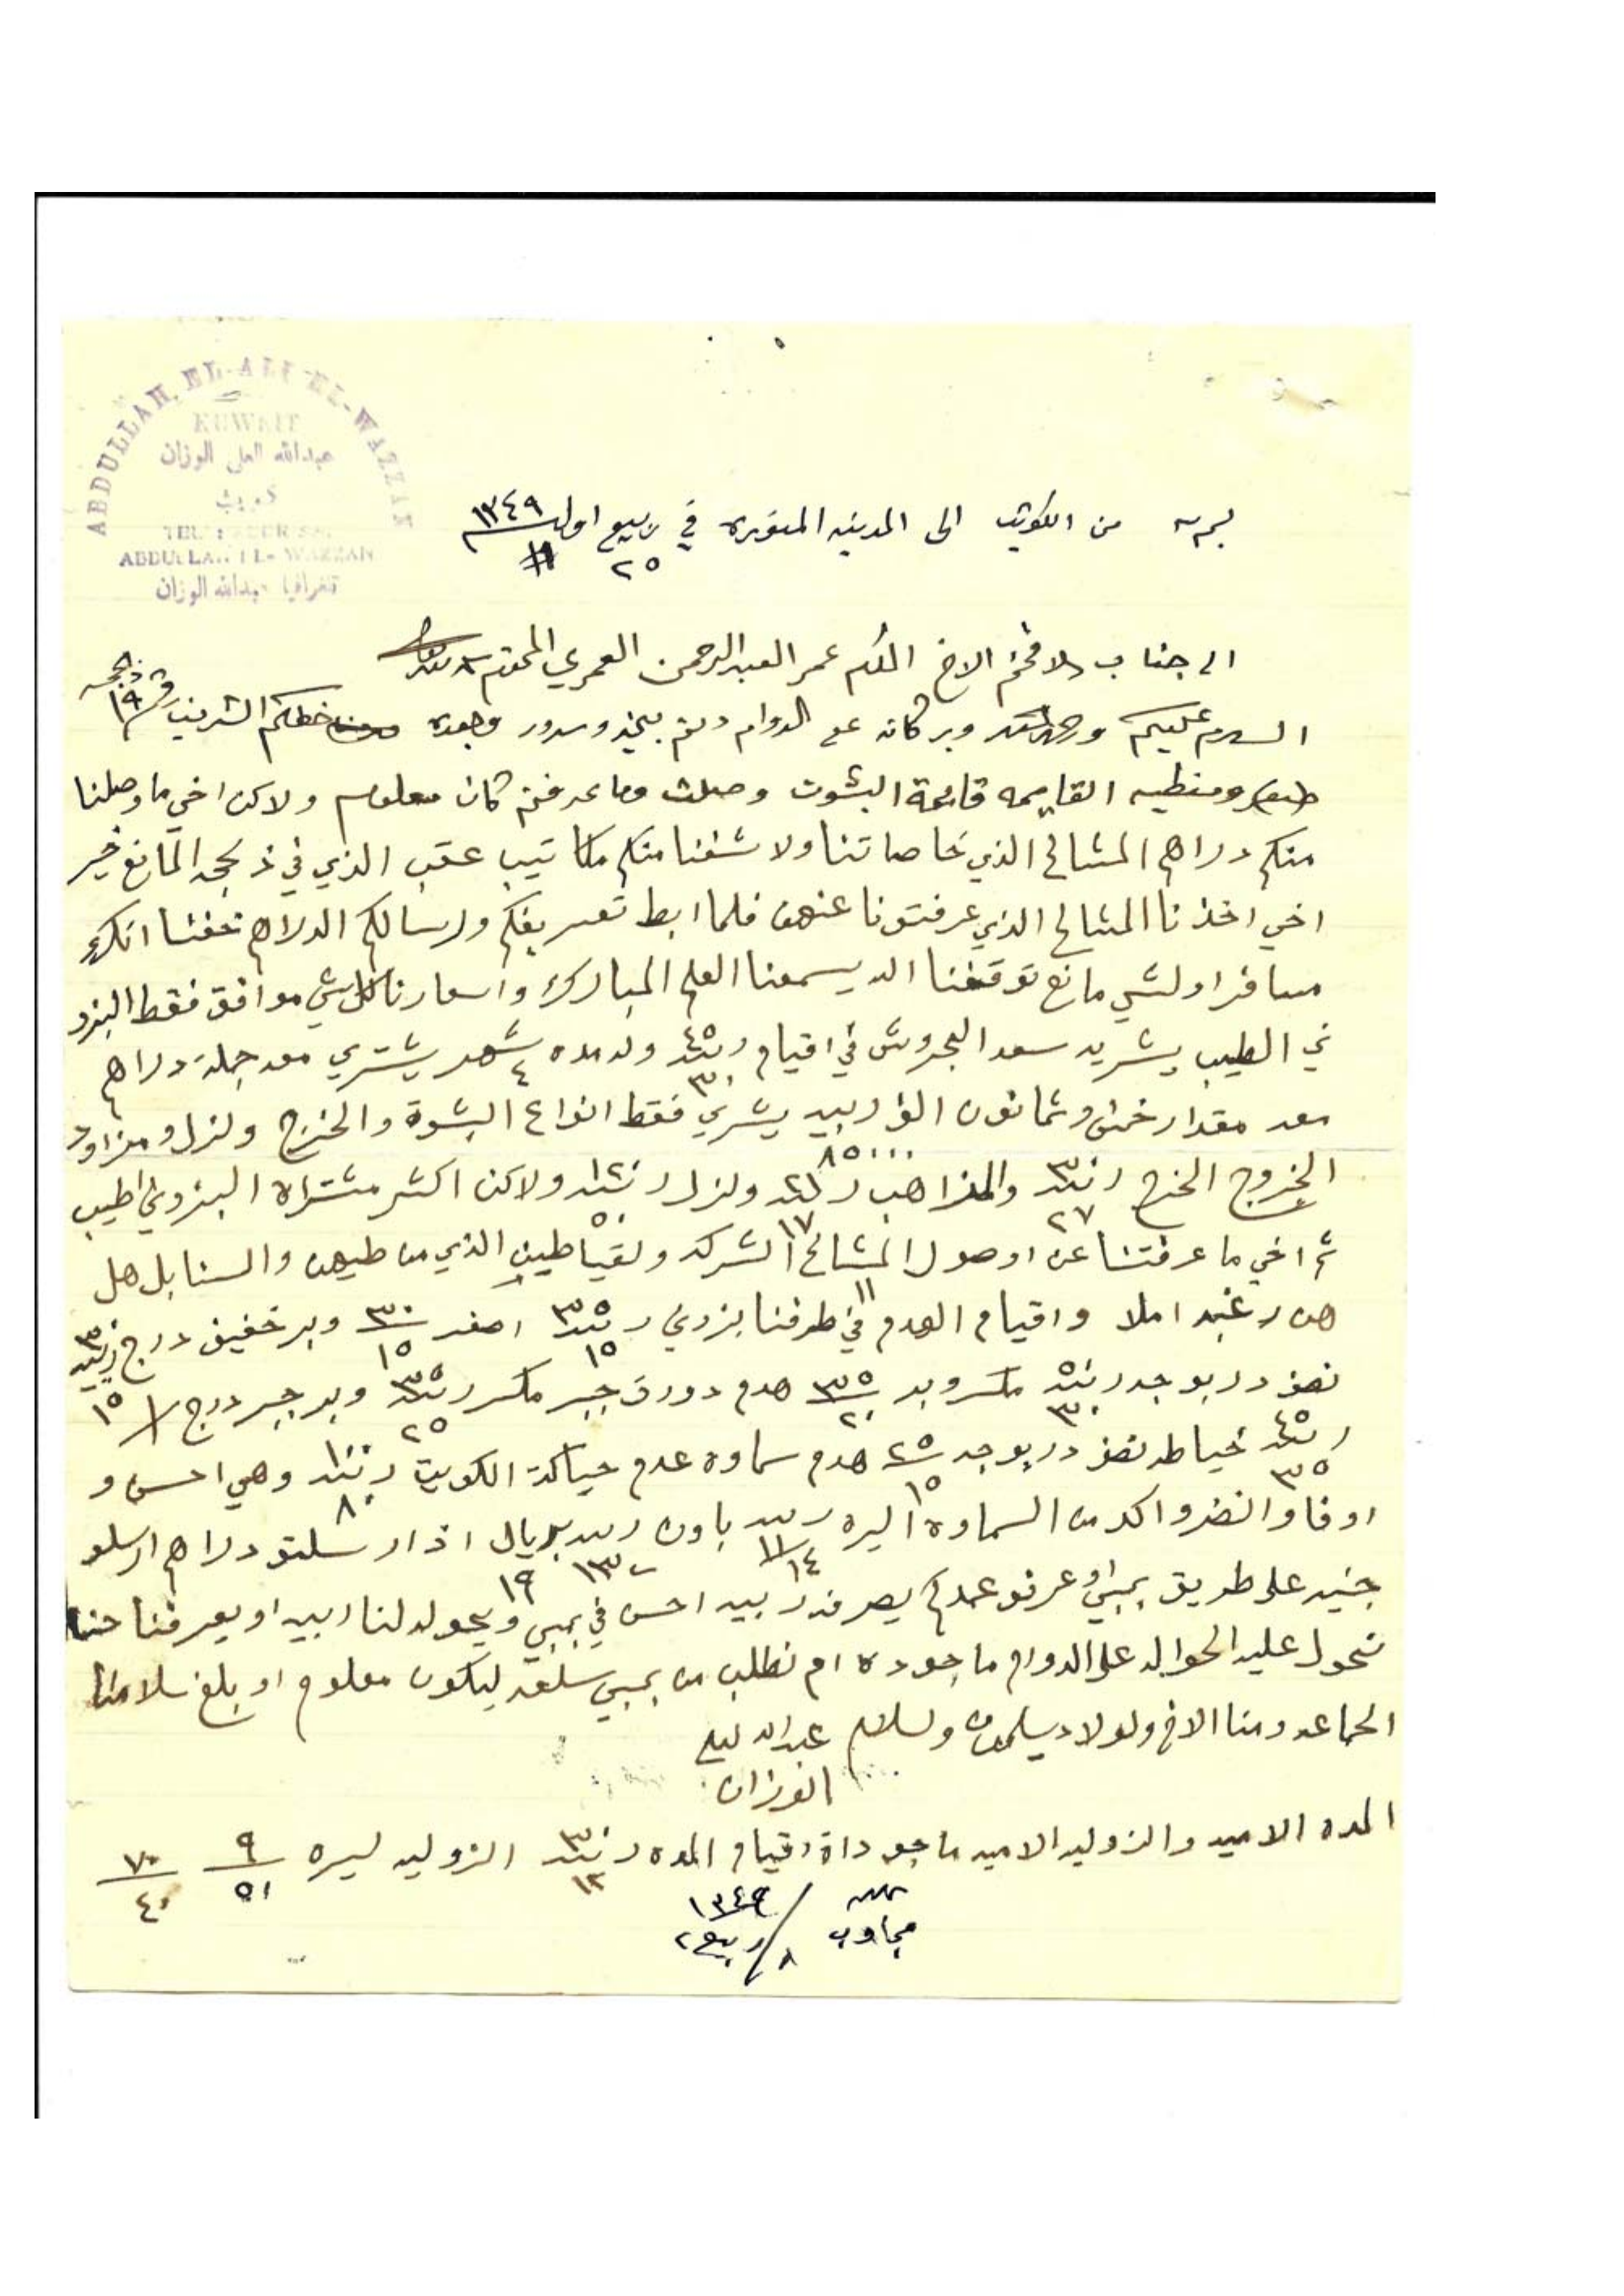 ABDULLAH EL-ALI EL-WAZZAN
KUWAIT
عبدالله العلي الوزان
كويت
ABDULLAH EL-WAZZAN
تلغرافيا عبدالله الوزان
من الكويت الى المدينه المنوره في ربيع اول ١٣٤٩
٢٥
الى جناب الافخم الاخ المكرم عمر العبدالرحمن العمري المحترم
السلام عليكم ورحمة الله وبركاته على الدوام دمتم بخير وسرور وبعده خطكم الشريف رقم ١٩ ذالحجه
القايمه قايمة البشوت وصلت وما عرفتم كان معلوم ولاكن اخي ما وصلنا
منكم دراهم المشالح الذي خاصاتنا ولا شفنا منكم مكاتيب عقب الذي في ذلحجه المانع خير
اخي اخذنا المشالح الذي عرفتونا عنهن فلما ابط تعريفكم وارسالكم الدراهم خفنا انك
مسافر او لشي مانع توقفنا الله يسمعنا العلم المبارك واسعارنا كل شي موافق فقط البزو
ني الطيب يشريه سعد البحروش في اقيام ٤٥ ٣٠ وله مده ٤ شهر يشتري معه جملة دراهم
معه مقدار خمس وثمانون الف ربيه ٨٥٠٠٠ يشري فقط انواع البشوة والخرج ولزل ومزاود
الخروج الخرج ٣٠ ٢٧ والمذاهب ١٧ ولزل ٥٠ ولاكن اكثر مشتراه البزوني اطيب
ثم اخي ما عرفتنا عن اوصول المشالح الشركه ولقياطين الذي من طيهن والسنابل هل
هن رغبه املا واقيام الهدم في طرفنا بزوني ٣٥ ١٥ اصفر ٣٠ ١٥ وبر خفيف درج ٣٠ ١٥
نصف دربوجه ٥٠ ٣٠ مكسر وبر ٣٥ ٢٠ هدم دورق جبر مكسر ٣٥ ٢٥ وبر جبر درج
٤٥ ٣٥ خياطه نصف دربوجه ٢٥ ١٥ هدم سماوه عدم حياكة الكويت ١٠٠ ٨٠ وهي احسن و
اوفا وانضر واكد من السماوة اليره ١١ ١٤ باون ١٣ ريال ١٩ اذا رسلتو دراهم ارسلو
جنيه على طريق بمبي او عرفو عملكم يصرفه ربيه احسن في بمبي ويحوله لنا ربيه او يعرفنا حنا
نحول عليه الحواله على الدوام ماجوده ام نطلب من بمبي سلعه ليكون معلوم او بلغ سلامنا
الجماعه ومنا الاخ ولولاد يسلمون ولسلام عبدالله لعلي
الوزان
المده الاميه والزوليه الاميه ماجوداة اقيام المده ٣٠ ١٢ الزوليه ليره ٩ ٥١ ٧٠ ٤٠
مجاوب ٨ ربيع ٢ ١٣٤٩